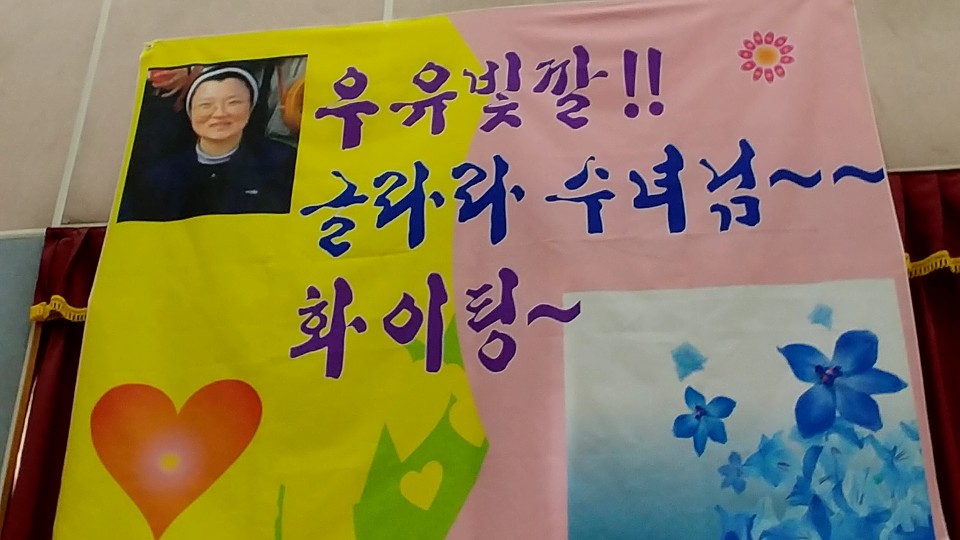 우유빛깔!!
글라라 수녀님~~
화이팅~